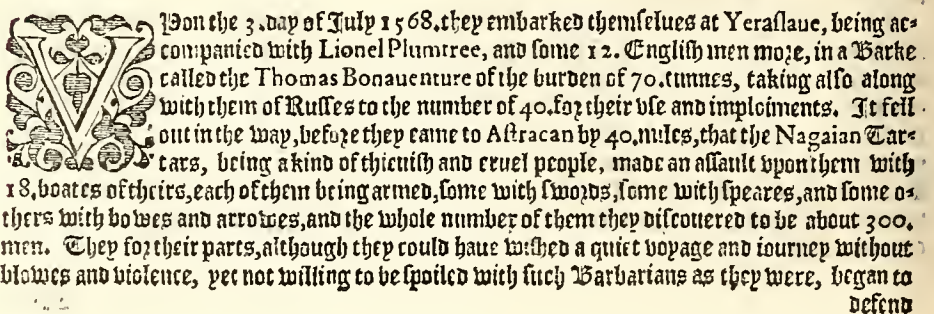 VPon the 3.day of July 1568.they embarked themselues at Yeraslaue, being ac-
companied with Lionel Plumtree, and some 12. English men more, in a Barke
called the Thomas Bonauenture of the burden of 70.tunnes, taking also along
with them of Russes to the number of 40.for their vse and imploiments. It fell
out in the way, before they came to Astracan by 40.miles, that the Nagaian Tar-
tars, being a kind of thieuish and cruel people, made an assault vpon them with
18.boates of theirs,each of them being armed,some with swords,some with speares,and some o-
thers with bowes and arrowes,and the whole number of them they discouered to be about 300.
men. They for their parts,although they could haue wished a quiet voyage and iourney without
blowes and violence, yet not willing to be spoiled with such Barbarians as they were, began to
defend